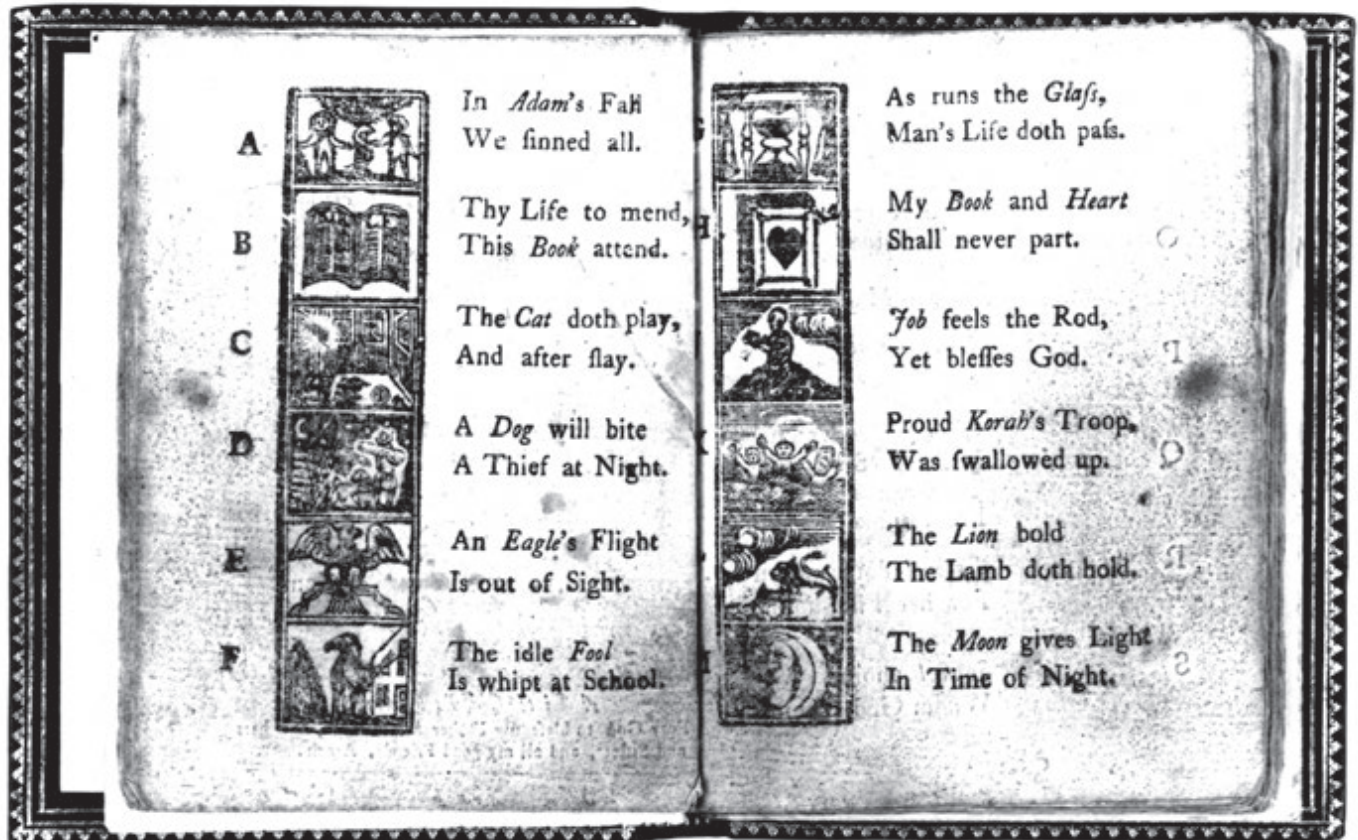 A
In Adam's Fall
We ſinned all.
B
Thy Life to mend,
This Book attend.
C
The Cat doth play,
And after ſlay.
D
A Dog will bite
A Thief at Night.
E
An Eagle's Flight
Is out of Sight.
F
The idle Fool
Is whipt at School.
G
As runs the Glaſs,
Man's Life doth paſs.
H
My Book and Heart
Shall never part.
Job feels the Rod,
Yet bleſſes God.
K
Proud Korah's Troop,
Was ſwallowed up.
The Lion bold
The Lamb doth hold.
The Moon gives Light
In Time of Night.